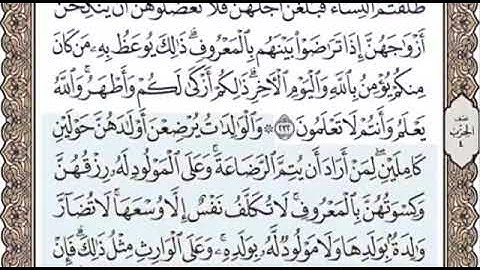 طَلَّقْتُمُ ٱلنِّسَآءَ فَبَلَغْنَ أَجَلَهُنَّ فَلَا تَعْضُلُوهُنَّ أَن يَنكِحْنَ
أَزْوَٰجَهُنَّ إِذَا تَرَٰضَوْا۟ بَيْنَهُم بِٱلْمَعْرُوفِ ۗ ذَٰلِكَ يُوعَظُ بِهِۦ مَن كَانَ
مِنكُمْ يُؤْمِنُ بِٱللَّهِ وَٱلْيَوْمِ ٱلْءَاخِرِ ۗ ذَٰلِكُمْ أَزْكَىٰ لَكُمْ وَأَطْهَرُ ۗ وَٱللَّهُ
يَعْلَمُ وَأَنتُمْ لَا تَعْلَمُونَ ٢٣٢ ۞ وَٱلْوَٰلِدَٰتُ يُرْضِعْنَ أَوْلَٰدَهُنَّ حَوْلَيْنِ
كَامِلَيْنِ ۖ لِمَنْ أَرَادَ أَن يُتِمَّ ٱلرَّضَاعَةَ ۚ وَعَلَى ٱلْمَوْلُودِ لَهُۥ رِزْقُهُنَّ
وَكِسْوَتُهُنَّ بِٱلْمَعْرُوفِ ۚ لَا تُكَلَّفُ نَفْسٌ إِلَّا وُسْعَهَا ۚ لَا تُضَآرَّ
وَٰلِدَةٌۢ بِوَلَدِهَا وَلَا مَوْلُودٌ لَّهُۥ بِوَلَدِهِۦ ۚ وَعَلَى ٱلْوَارِثِ مِثْلُ ذَٰلِكَ ۗ فَإِنْ
نصف
الحزب
٤